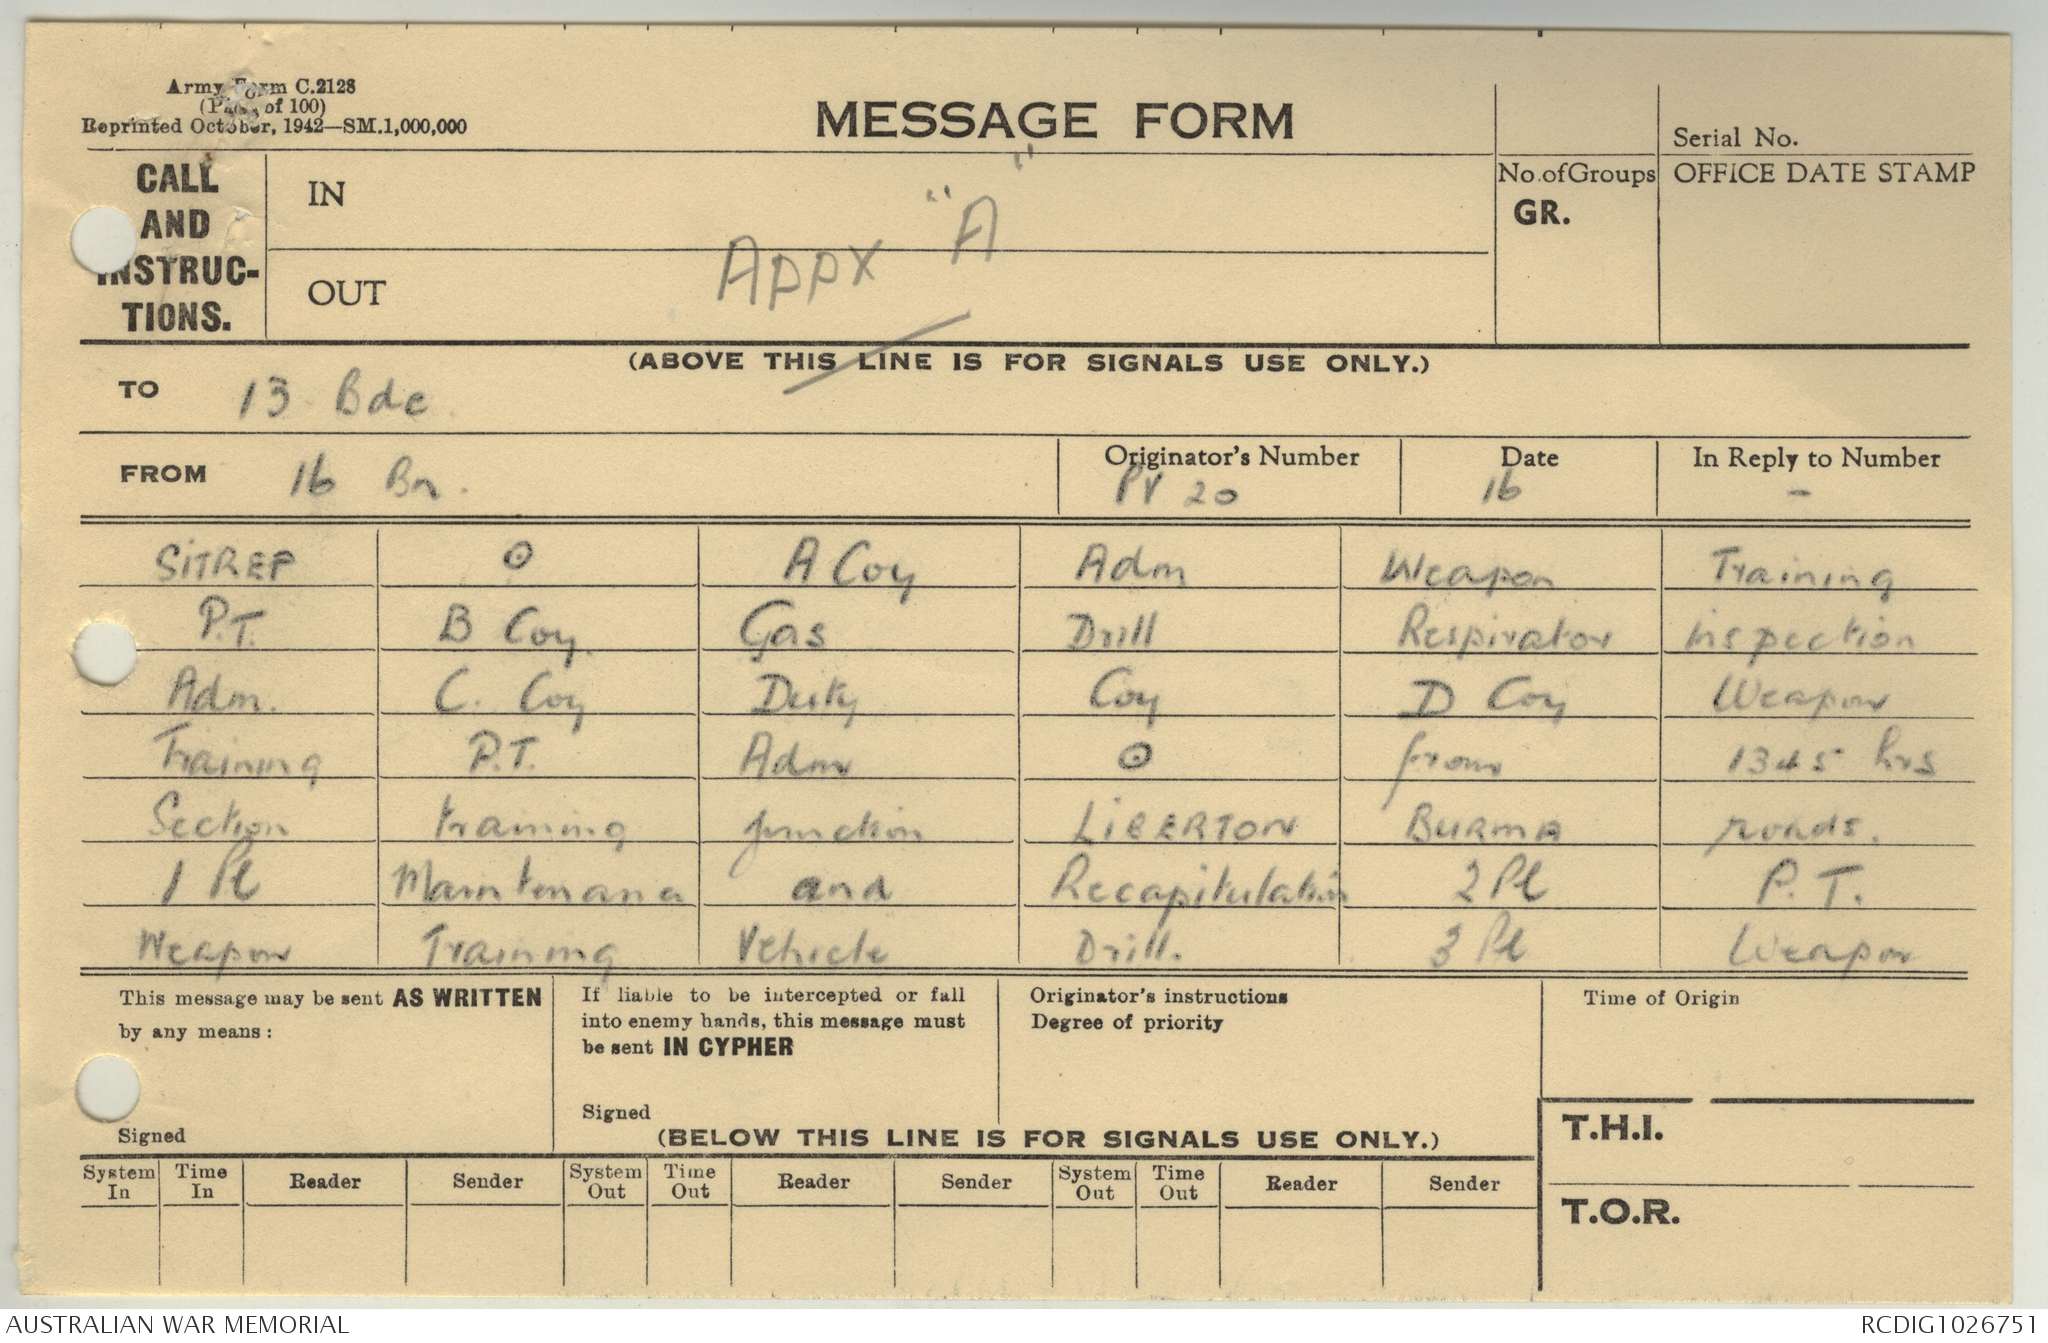 Army Form C.2128
(Pads of 100)
Reprinted October, 1942—SM.1,000,000
MESSAGE FORM
Serial No.
CALL AND INSTRUC- TIONS.
IN
No. of Groups
GR.
OFFICE DATE STAMP
OUT
Appx "A"
(ABOVE THIS LINE IS FOR SIGNALS USE ONLY.)
TO 13 Bde.
FROM 16 Bn.
Originator's Number PV 20
Date 16
In Reply to Number -
SITREP ⊙ A Coy Adm Weapon Training
P.T. B Coy. Gas Drill Respirator inspection
Adm. C. Coy Duty Coy D Coy Weapon
Training P.T. Adm ⊙ from 1345 hrs
Section training junction LIBERTON BURMA roads.
1 Pl Maintenance and Recapitulation 2 Pl P.T.
Weapon Training Vehicle Drill. 3 Pl Weapon
This message may be sent AS WRITTEN
by any means:
Signed
If liable to be intercepted or fall
into enemy hands, this message must
be sent IN CYPHER
Signed
Originator's instructions
Degree of priority
Time of Origin
(BELOW THIS LINE IS FOR SIGNALS USE ONLY.)
T.H.I.
System In Time In Reader Sender System Out Time Out Reader Sender System Out Time Out Reader Sender
T.O.R.
AUSTRALIAN WAR MEMORIAL
RCDIG1026751